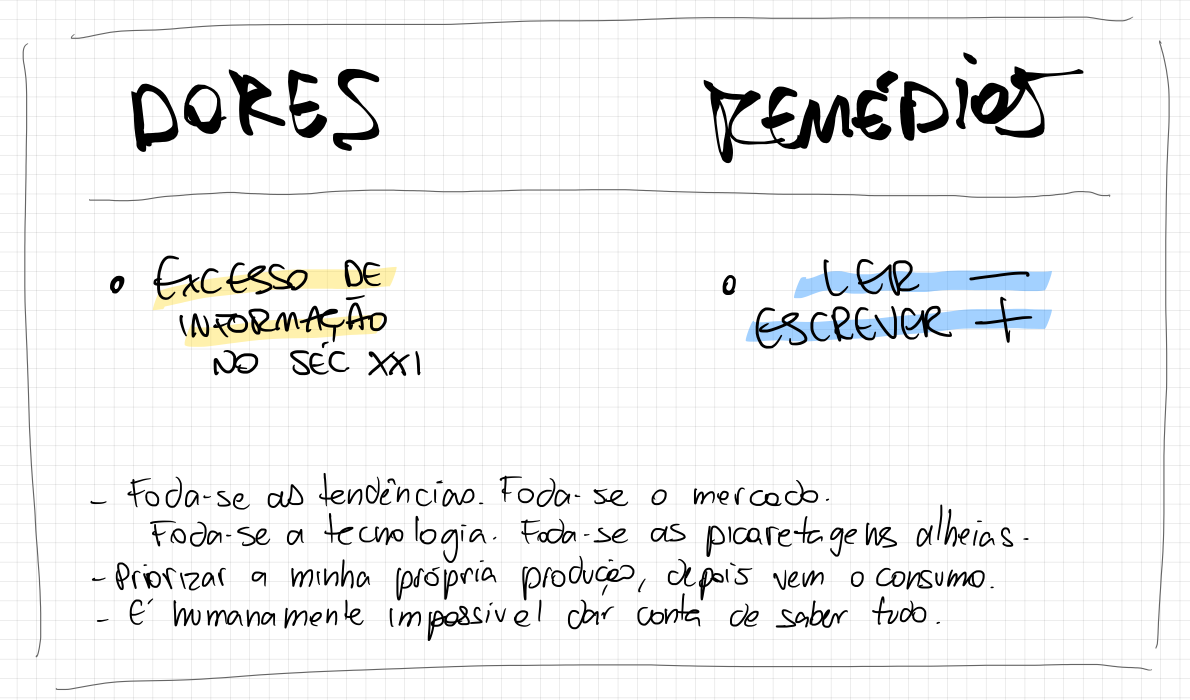 DORES
REMÉDIOS
• EXCESSO DE
INFORMAÇÃO
NO SÉC XXI
• LER —
ESCREVER +
- Foda-se as tendências. Foda-se o mercado.
Foda-se a tecnologia. Foda-se as picaretagens alheias.
- Priorizar a minha própria produção, depois vem o consumo.
- É humanamente impossível dar conta de saber tudo.